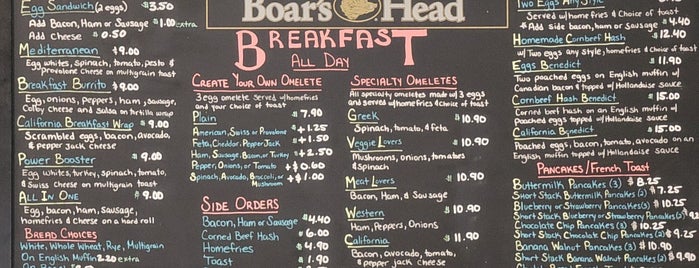 Egg Sandwich (2 eggs) $3.50
Add Bacon, Ham or Sausage $1.00 extra
Add Cheese $0.50
Mediterranean $9.00
Egg whites, spinach, tomato, pesto &
provolone Cheese on multigrain toast
Breakfast Burrito $9.00
Egg, onions, peppers, ham, sausage,
Colby Cheese and Salsa on tortilla wrap
California Breakfast Wrap $9.00
Scrambled eggs, bacon, avocado,
& pepper jack Cheese
Power Booster $9.00
Egg whites, turkey, spinach, tomato,
& Swiss Cheese on multigrain toast
All In One $9.00
Egg, bacon, ham, sausage,
homefries & Cheese on a hard roll
Bread Choices
White, Whole Wheat, Rye, Multigrain
On English Muffin 2.20 extra
Boar's Head
Breakfast
All Day
Create Your Own Omelete
3 egg omelete served w/homefries
and your choice of toast
Plain $7.90
American, Swiss or Provolone +$1.25
Feta, Cheddar, PepperJack +$1.50
Ham, Sausage, Bacon, or Turkey +$2.50
Peppers, Onions, or Tomato +$0.60
Spinach, Avocado, Broccoli, or +$1.00
Mushroom
Side Orders
Bacon, Ham or Sausage $4.40
Corned Beef Hash $6.00
Homefries $4.90
Toast $1.90
Specialty Omeletes
All specialty omeletes made w/3 eggs
and served w/homefries & Choice of toast
Greek $10.90
Spinach, tomato, & Feta
Veggie Lovers $10.90
Mushrooms, onions, tomatoes
& spinach
Meat Lovers $10.90
Bacon, Ham, & Sausage
Western $10.90
Ham, Peppers, Onions
California $11.90
Bacon, avocado, tomato,
& pepper jack cheese
Two Eggs Any Style
Served w/homefries & Choice of toast
* Add side bacon, ham or Sausage $4.40
Homemade Cornbeef Hash $12.40
w/ Two eggs any style, homefries & choice of toast
Eggs Benedict $11.90
Two poached eggs on English muffin w/
Canadian bacon & topped w/ Hollandaise sauce
Cornbeef Hash Benedict $15.00
Corned beef hash on an English muffin w/
Poached eggs topped w/ Hollandaise Sauce
California Benedict $15.00
Poached eggs, bacon, tomato, avocado on an
English muffin topped w/ Hollandaise Sauce
Pancakes/French Toast
Buttermilk Pancakes (3) $8.25
Short Stack Buttermilk Pancakes (2) $7.25
Blueberry or Strawberry Pancakes (3) $10.25
Short Stack Blueberry or Strawberry Pancakes (2) $9.25
Chocolate Chip Pancakes (3) $10.25
Short Stack Chocolate Chip Pancakes (2) $9.25
Banana Walnut Pancakes (3) $10.90
Short Stack Banana Walnut Pancakes (2) $9.90